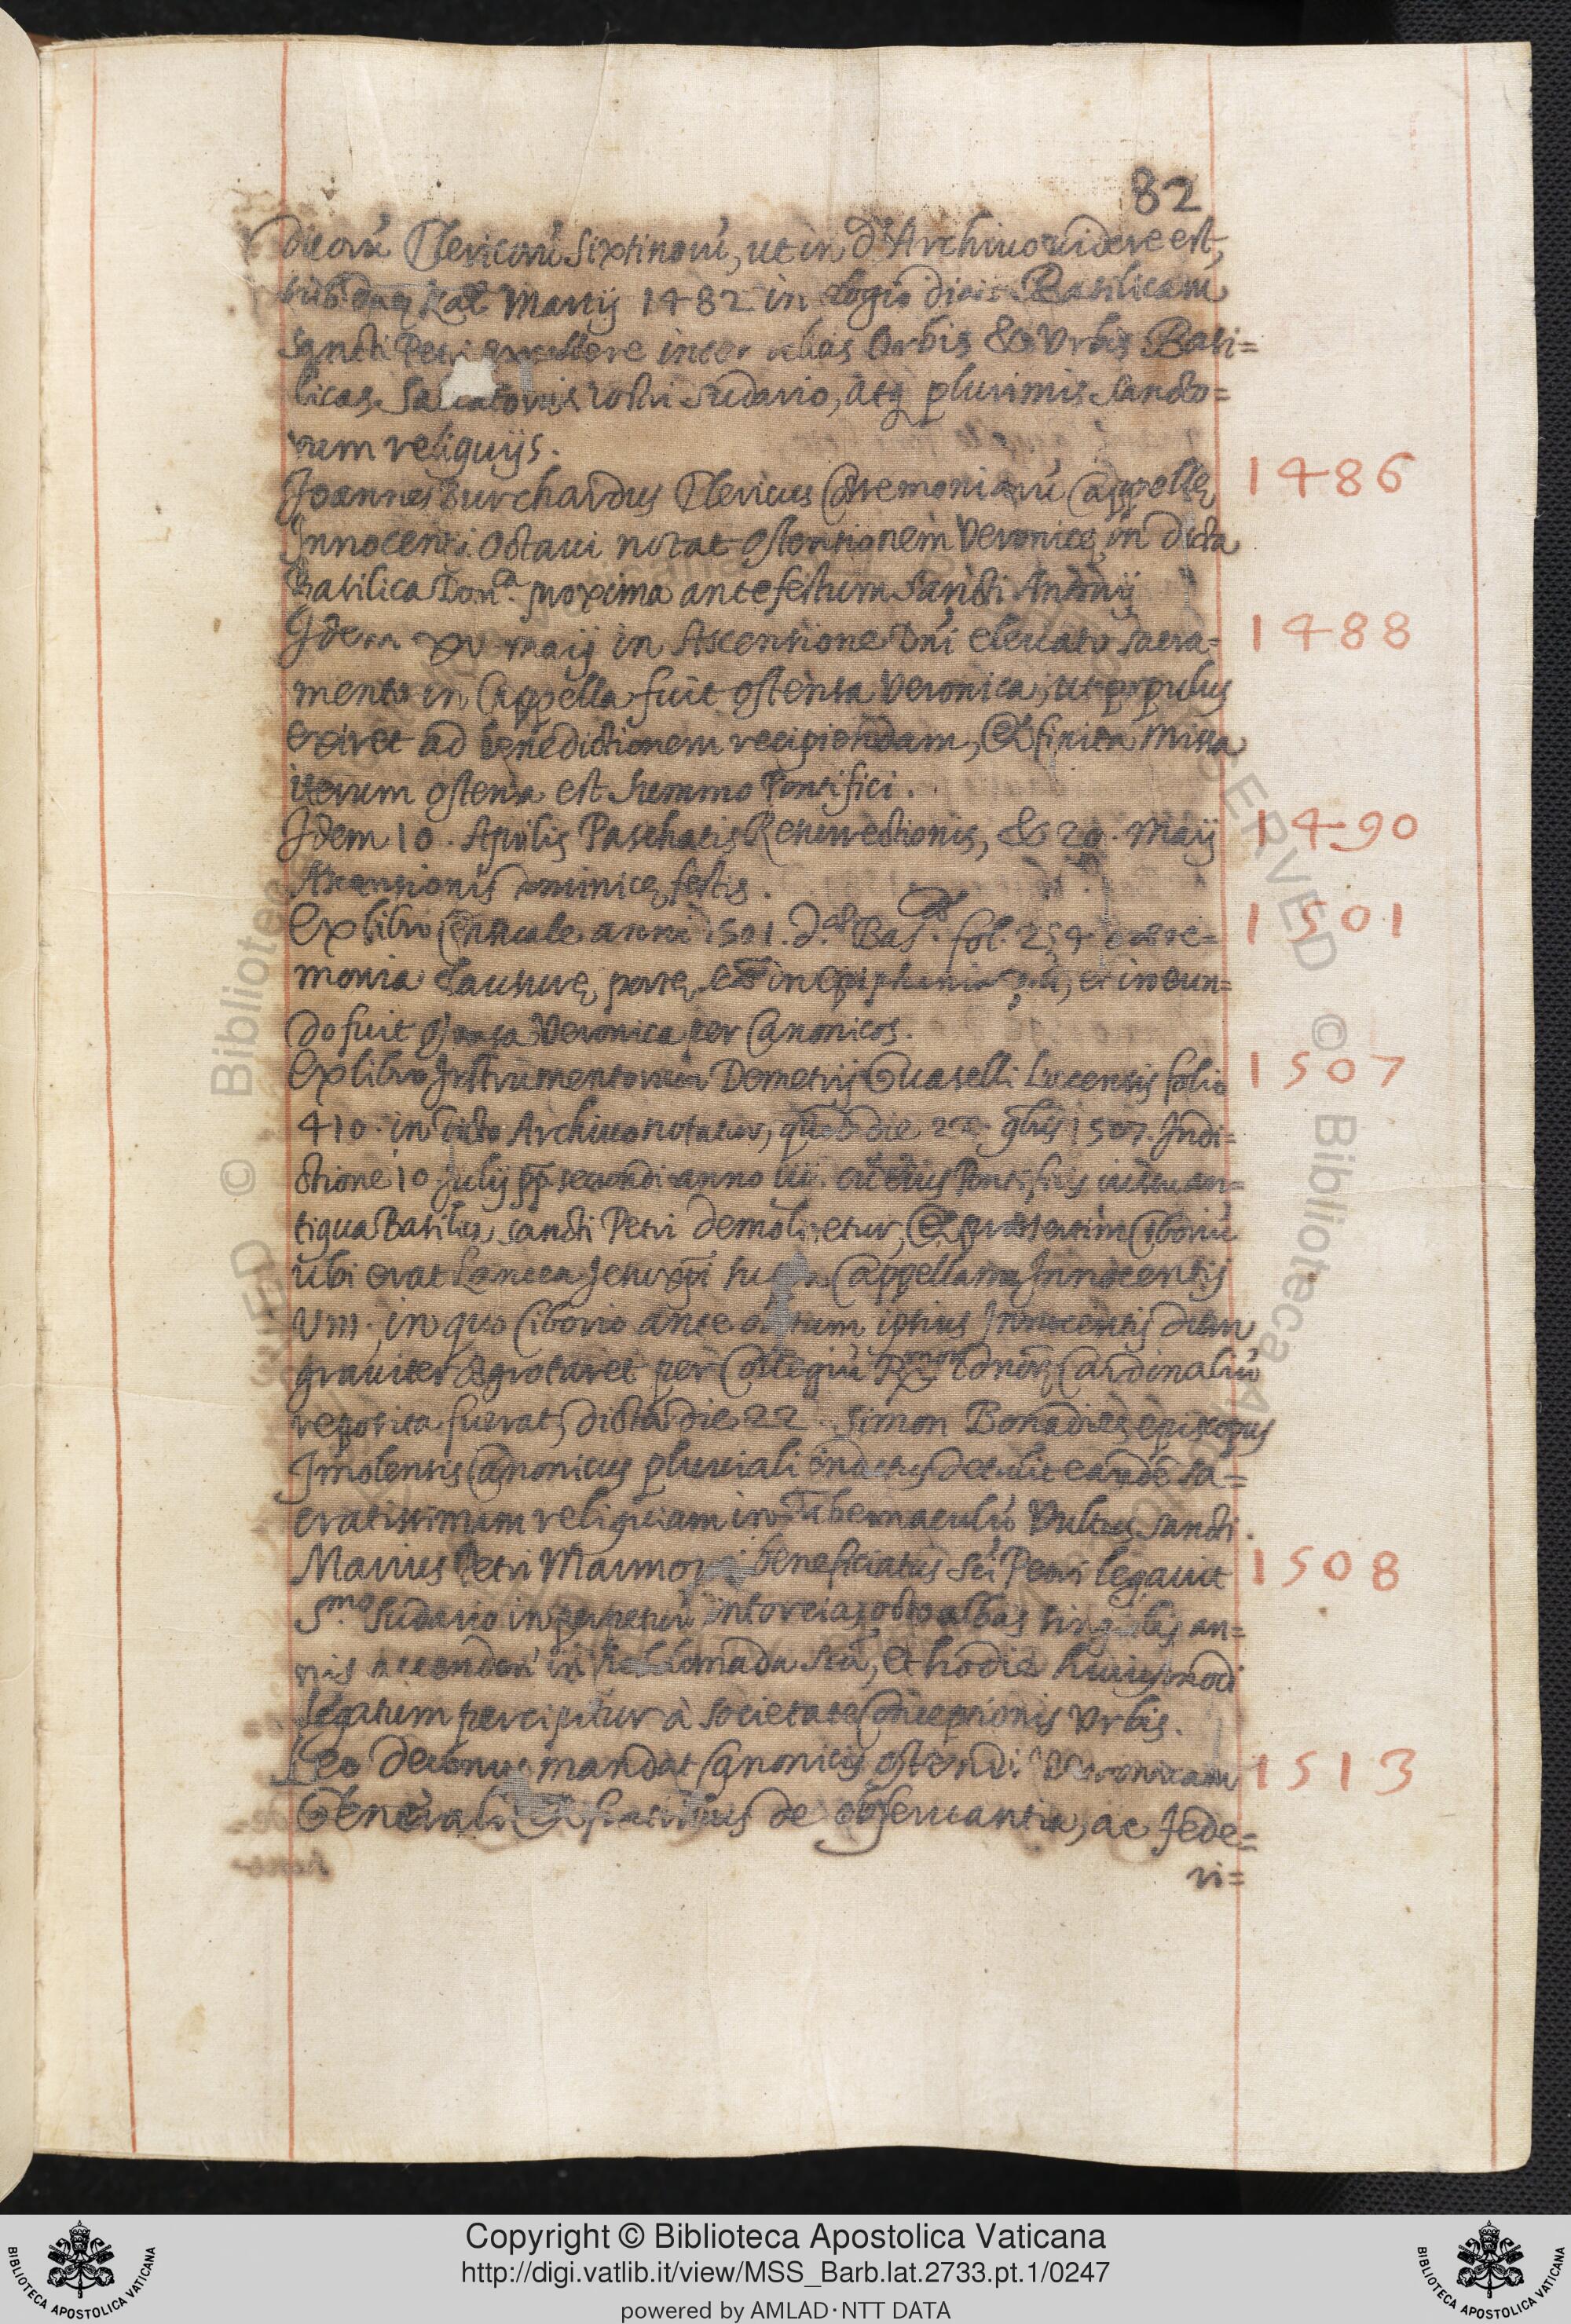 82
dictorũ Clericorũ Sixtinorũ, ut in d.º Archiuo uidere est,
sub Kal Martij 1482 in Basilicam
Sancti Petri excellere inter alias Orbis & Urbis Basi=
licas Saluatoris nostri Sudario, atq plurimis Sancto=
rum reliquijs.
Joannes Burchardus Clericus Cæremoniarũ Cappellę 1486
Innocentij Octaui notat ostentionem Veronicę in dicta
Basilica Domca proxima ante festum Sancti Antonij
Idem xv maij in Ascensione Dñi eleuato sacra= 1488
mento in Cappella fuit ostensa Veronica, ut populus
exiret ad benedictionem recipiendam, & finita missa
iterum ostensa est summo Pontifici.
Idem 10. Aprilis Paschatis Resurrectionis, & 20. Maij 1490
Ascensionis Dominicę festis.
Ex libro Censuale anni 1501. d.æ Bas. fol. 254 cære= 1501
monia clausurę portę in Epiphania et in eun=
do fuit ostensa Veronica per Canonicos.
Ex libro Instrumentorum Demetrij Guaselli Lucensis folio 1507
410. in dicto Archiuo notatur, quod die 22 9bris 1507. Indi=
ctione 10 Julij pp secundi anno iiij. cũ eius Pontificis iussu an=
tiqua Basilica sancti Petri demoliretur, & præsertim Ciboriũ
ubi erat Lancea Jesu xp̃i Cappellam Innocentij
VIII. in quo Ciborio ante obitum ipsius Innocentij dum
grauiter ægrotaret per Collegiũ Rmorum dnorũ Cardinaliũ
reposita fuerat, dicta die 22. Simon Bonadies episcopus
Imolensis Canonicus pluuiali indutus detulit eandẽ sa=
cratissimam reliquiam in Tabernaculũ Vultus sancti.
Marius Petri Marmo beneficiatus Sci Petri legauit 1508
Smo Sudario in perpetuũ intorcias octo albas singulis an=
nis accenden in hebdomada scã, et hodie huiusmodi
legatum percipitur à societate Conceptionis Urbis.
Leo decimus mandat Canonicis ostendi Veronicam 1513
Generali & fratribus de obseruantia, ac Fede=
ri=
Copyright © Biblioteca Apostolica Vaticana
http://digi.vatlib.it/view/MSS_Barb.lat.2733.pt.1/0247
powered by AMLAD·NTT DATA
BIBLIOTECA APOSTOLICA VATICANA
BIBLIOTECA APOSTOLICA VATICANA